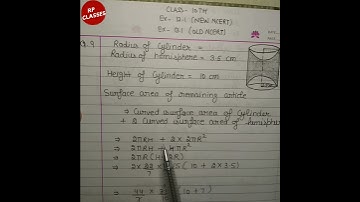 RP
CLASSES
CLASS- 10TH
Ex- 12.1 (NEW NCERT)
Ex- 13.1 (OLD NCERT)
Q.9
Radius of Cylinder =
Radius of hemisphere = 3.5 cm
Height of Cylinder = 10 cm
Surface area of remaining article
⇒ Curved surface area of Cylinder
+ 2 Curved surface area of hemisphere
⇒ 2πRH + 2 × 2πR²
⇒ 2πRH + 4πR²
⇒ 2πR (H + 2R)
⇒ 2 × 22/7 × 3.5 (10 + 2 × 3.5)
⇒ 44/7 × (10 + 7)